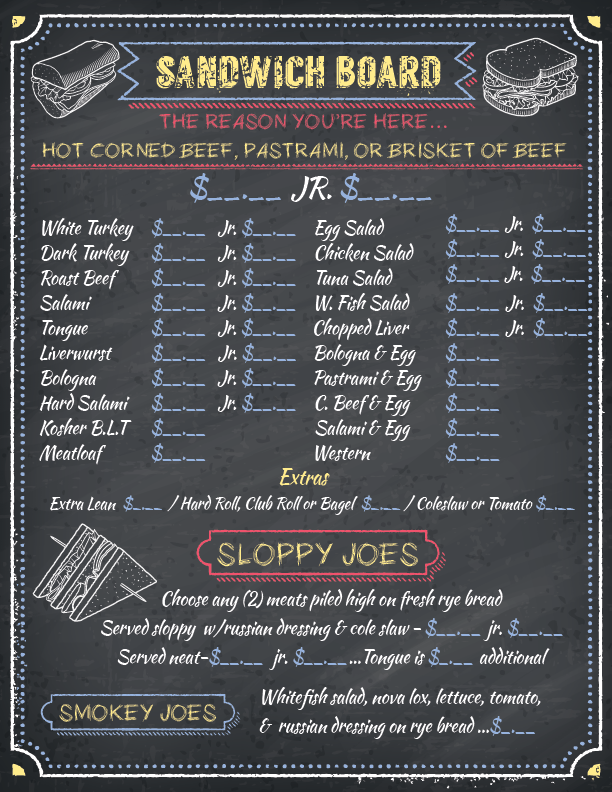 SANDWICH BOARD
THE REASON YOU'RE HERE...
HOT CORNED BEEF, PASTRAMI, OR BRISKET OF BEEF
$__.__ JR. $__.__
White Turkey $__.__ Jr. $__.__ Egg Salad $__.__ Jr. $__.__
Dark Turkey $__.__ Jr. $__.__ Chicken Salad $__.__ Jr. $__.__
Roast Beef $__.__ Jr. $__.__ Tuna Salad $__.__ Jr. $__.__
Salami $__.__ Jr. $__.__ W. Fish Salad $__.__ Jr. $__.__
Tongue $__.__ Jr. $__.__ Chopped Liver $__.__ Jr. $__.__
Liverwurst $__.__ Jr. $__.__ Bologna & Egg $__.__
Bologna $__.__ Jr. $__.__ Pastrami & Egg $__.__
Hard Salami $__.__ Jr. $__.__ C. Beef & Egg $__.__
Kosher B.L.T $__.__ Salami & Egg $__.__
Meatloaf $__.__ Western $__.__
Extras
Extra Lean $_.__ / Hard Roll, Club Roll or Bagel $_.__ / Coleslaw or Tomato $_.__
SLOPPY JOES
Choose any (2) meats piled high on fresh rye bread
Served sloppy w/russian dressing & cole slaw - $__.__ jr. $__.__
Served neat-$__.__ jr. $__.__...Tongue is $_.__ additional
SMOKEY JOES
Whitefish salad, nova lox, lettuce, tomato,
& russian dressing on rye bread ...$_.__